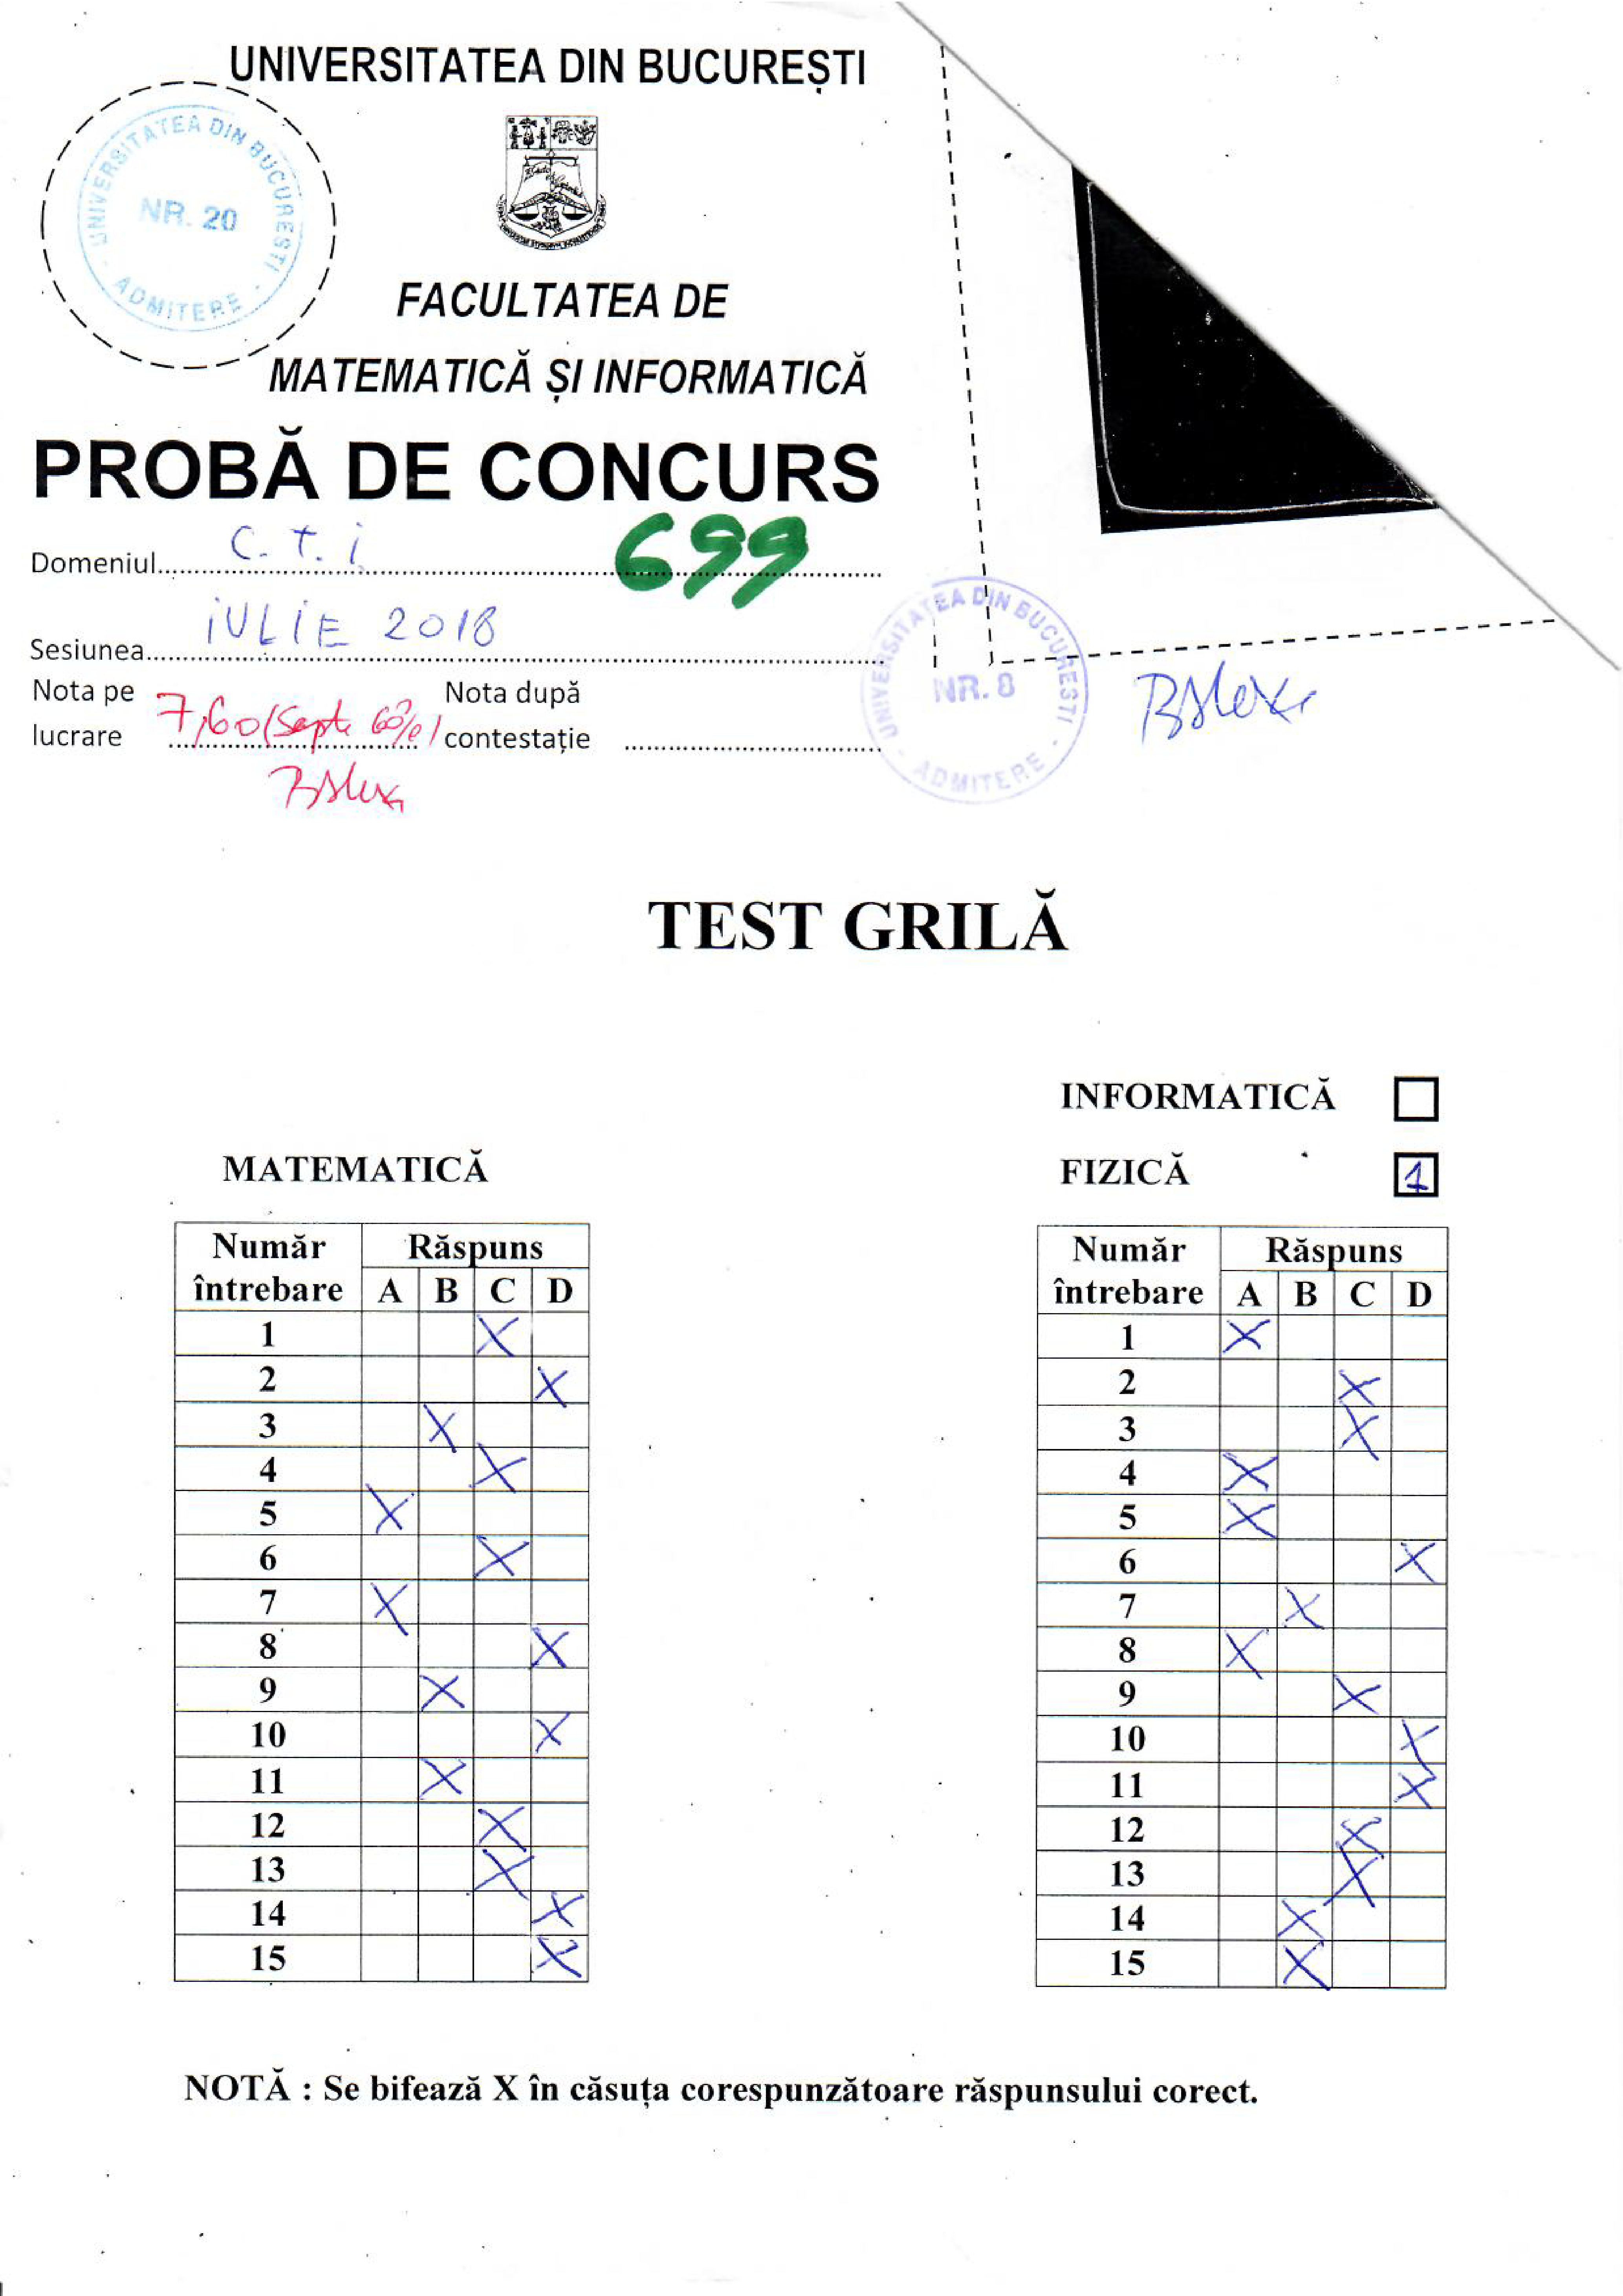 UNIVERSITATEA DIN BUCUREȘTI
UNIVERSITATEA DIN BUCURESTI
NR. 20
ADMITERE
FACULTATEA DE
MATEMATICĂ ȘI INFORMATICĂ
PROBĂ DE CONCURS
699
Domeniul C. T. i
Sesiunea iULiE 2018
Nota pe lucrare 7,60 (Șapte 60%)
Nota după contestație
UNIVERSITATEA DIN BUCURESTI
NR. 8
ADMITERE
TEST GRILĂ
INFORMATICĂ
MATEMATICĂ
FIZICĂ 1
Număr întrebare Răspuns
A B C D
1 X
2 X
3 X
4 X
5 X
6 X
7 X
8 X
9 X
10 X
11 X
12 X
13 X
14 X
15 X
Număr întrebare Răspuns
A B C D
1 X
2 X
3 X
4 X
5 X
6 X
7 X
8 X
9 X
10 X
11 X
12 X
13 X
14 X
15 X
NOTĂ : Se bifează X în căsuța corespunzătoare răspunsului corect.